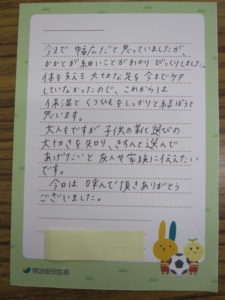 今まで 幅広だと思っていましたが、
かかとが細いことがわかり びっくりしました。
体を支える 大切な足を今までケア
していなかったので、これからは
保湿と くつひもをしっかりと結ぼうと
思います。
大人もですが 子供の靴選びの
大切さを知り、きちんと選んで
あげたいと 友人や家族に伝えたい
です。
今日は 呼んで頂きありがとう
ございました。
明治安田生命